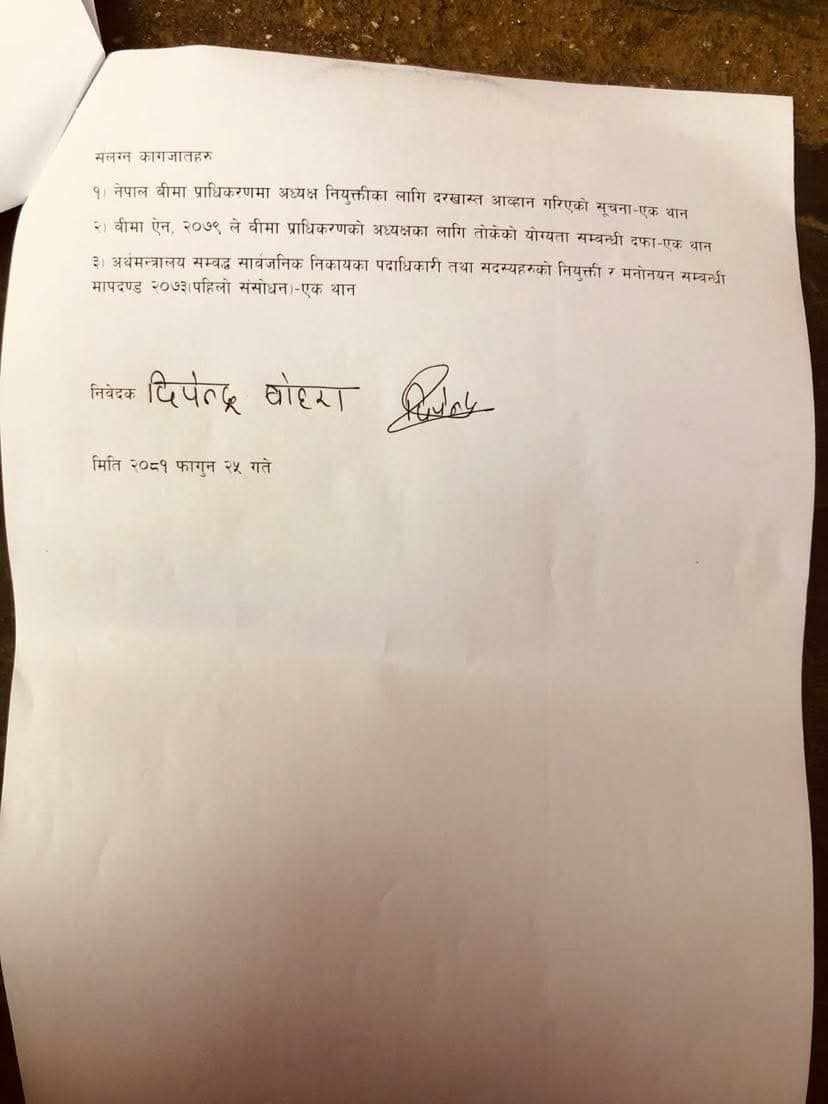 सलग्न कागजातहरु
१) नेपाल बीमा प्राधिकरणमा अध्यक्ष नियुक्तीका लागि दरखास्त आव्हान गरिएको सूचना-एक थान
२) बीमा ऐन, २०७९ ले बीमा प्राधिकरणको अध्यक्षका लागि तोकेको योग्यता सम्बन्धी दफा-एक थान
३) अर्थमन्त्रालय सम्वद्ध सार्वजनिक निकायका पदाधिकारी तथा सदस्यहरुको नियुक्ती र मनोनयन सम्बन्धी
मापदण्ड २०७३(पहिलो संसोधन)-एक थान
निवेदक दिपेन्द्र बोहरा दिपेन्द्र
मिति २०८१ फागुन २५ गते